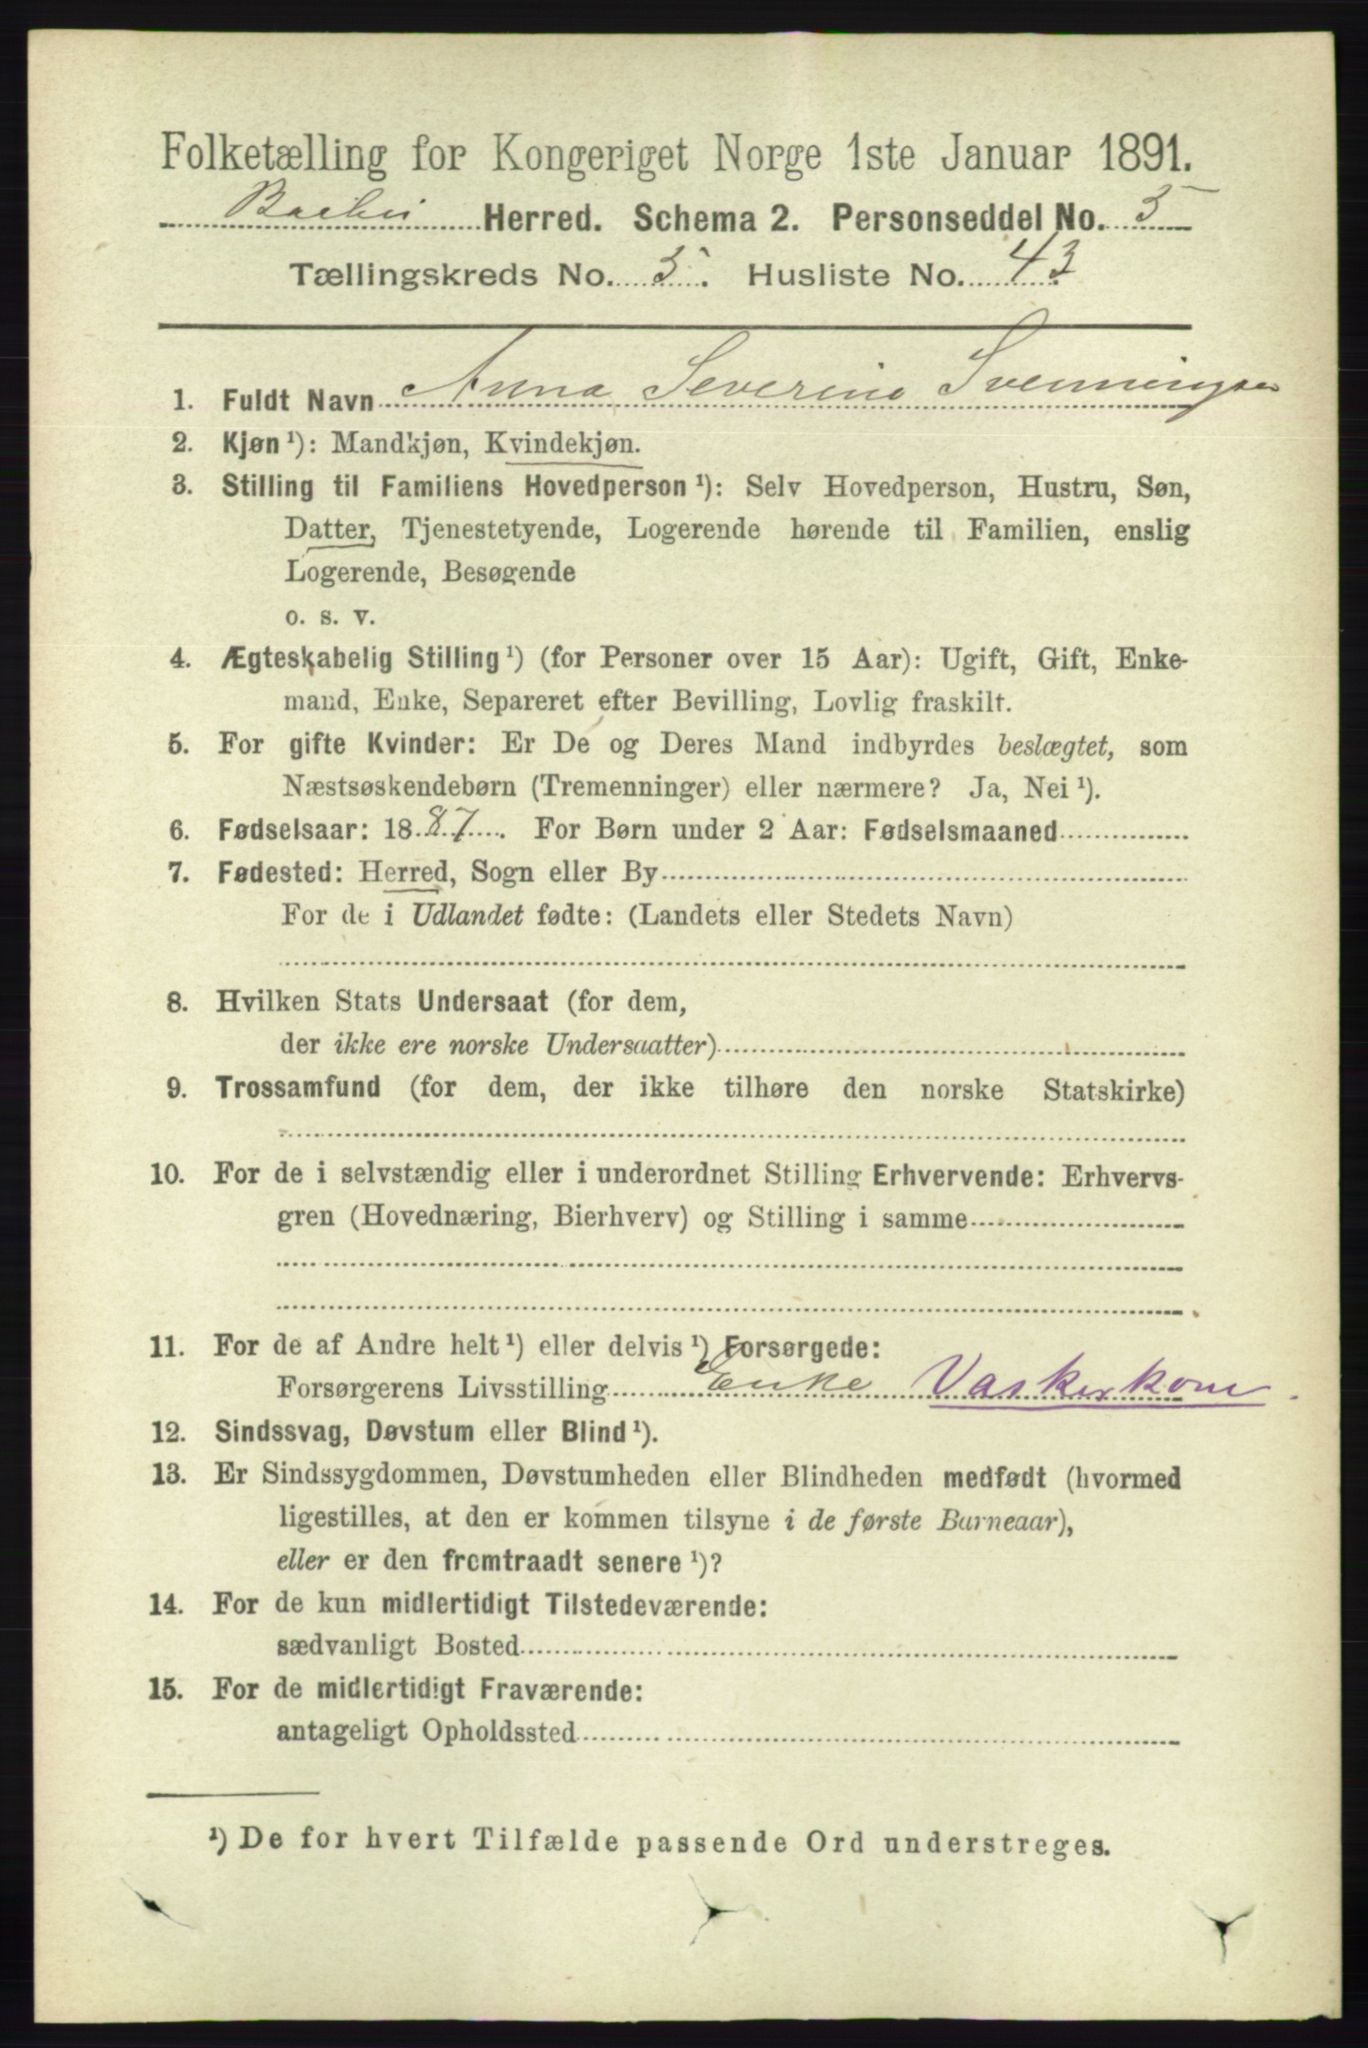 Folketælling for Kongeriget Norge 1ste Januar 1891.
Barbu Herred. Schema 2. Personseddel No. 5
Tællingskreds No. 5. Husliste No. 43
1. Fuldt Navn Anna Severine Svenningsen
2. Kjøn ¹): Mandkjøn, Kvindekjøn.
3. Stilling til Familiens Hovedperson ¹): Selv Hovedperson, Hustru, Søn,
Datter, Tjenestetyende, Logerende hørende til Familien, enslig
Logerende, Besøgende
o. s. v.
4. Ægteskabelig Stilling ¹) (for Personer over 15 Aar): Ugift, Gift, Enke-
mand, Enke, Separeret efter Bevilling, Lovlig fraskilt.
5. For gifte Kvinder: Er De og Deres Mand indbyrdes beslægtet, som
Næstsøskendebørn (Tremenninger) eller nærmere? Ja, Nei ¹).
6. Fødselsaar: 1887. For Børn under 2 Aar: Fødselsmaaned
7. Fødested: Herred, Sogn eller By
For de i Udlandet fødte: (Landets eller Stedets Navn)
8. Hvilken Stats Undersaat (for dem,
der ikke ere norske Undersaatter)
9. Trossamfund (for dem, der ikke tilhøre den norske Statskirke)
10. For de i selvstændig eller i underordnet Stilling Erhvervende: Erhvervs-
gren (Hovednæring, Bierhverv) og Stilling i samme
11. For de af Andre helt ¹) eller delvis ¹) Forsørgede:
Forsørgerens Livsstilling Enke Vaskerkone.
12. Sindssvag, Døvstum eller Blind ¹).
13. Er Sindssygdommen, Døvstumheden eller Blindheden medfødt (hvormed
ligestilles, at den er kommen tilsyne i de første Barneaar),
eller er den fremtraadt senere ¹)?
14. For de kun midlertidigt Tilstedeværende:
sædvanligt Bosted
15. For de midlertidigt Fraværende:
antageligt Opholdssted
¹) De for hvert Tilfælde passende Ord understreges.